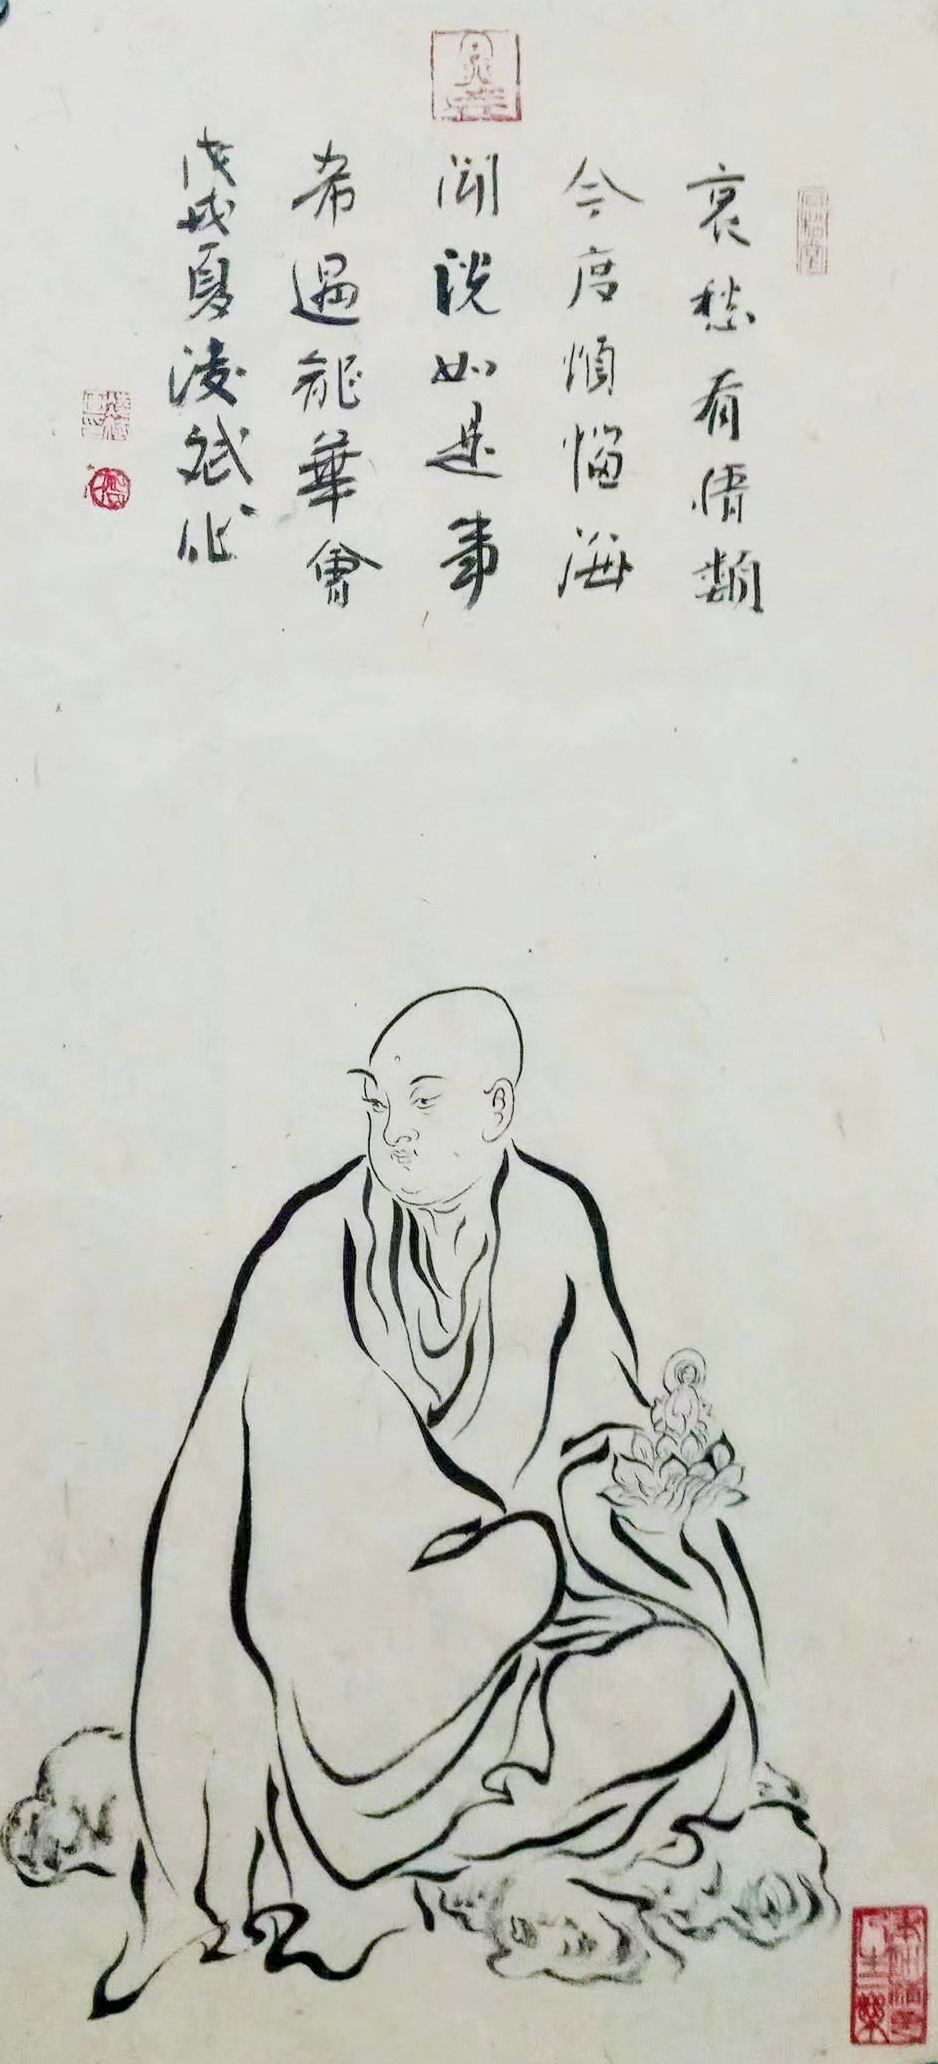 哀愁有情類
今度煩惱海
聞說如是事
希遇龍華會
戊戌夏凌斌作